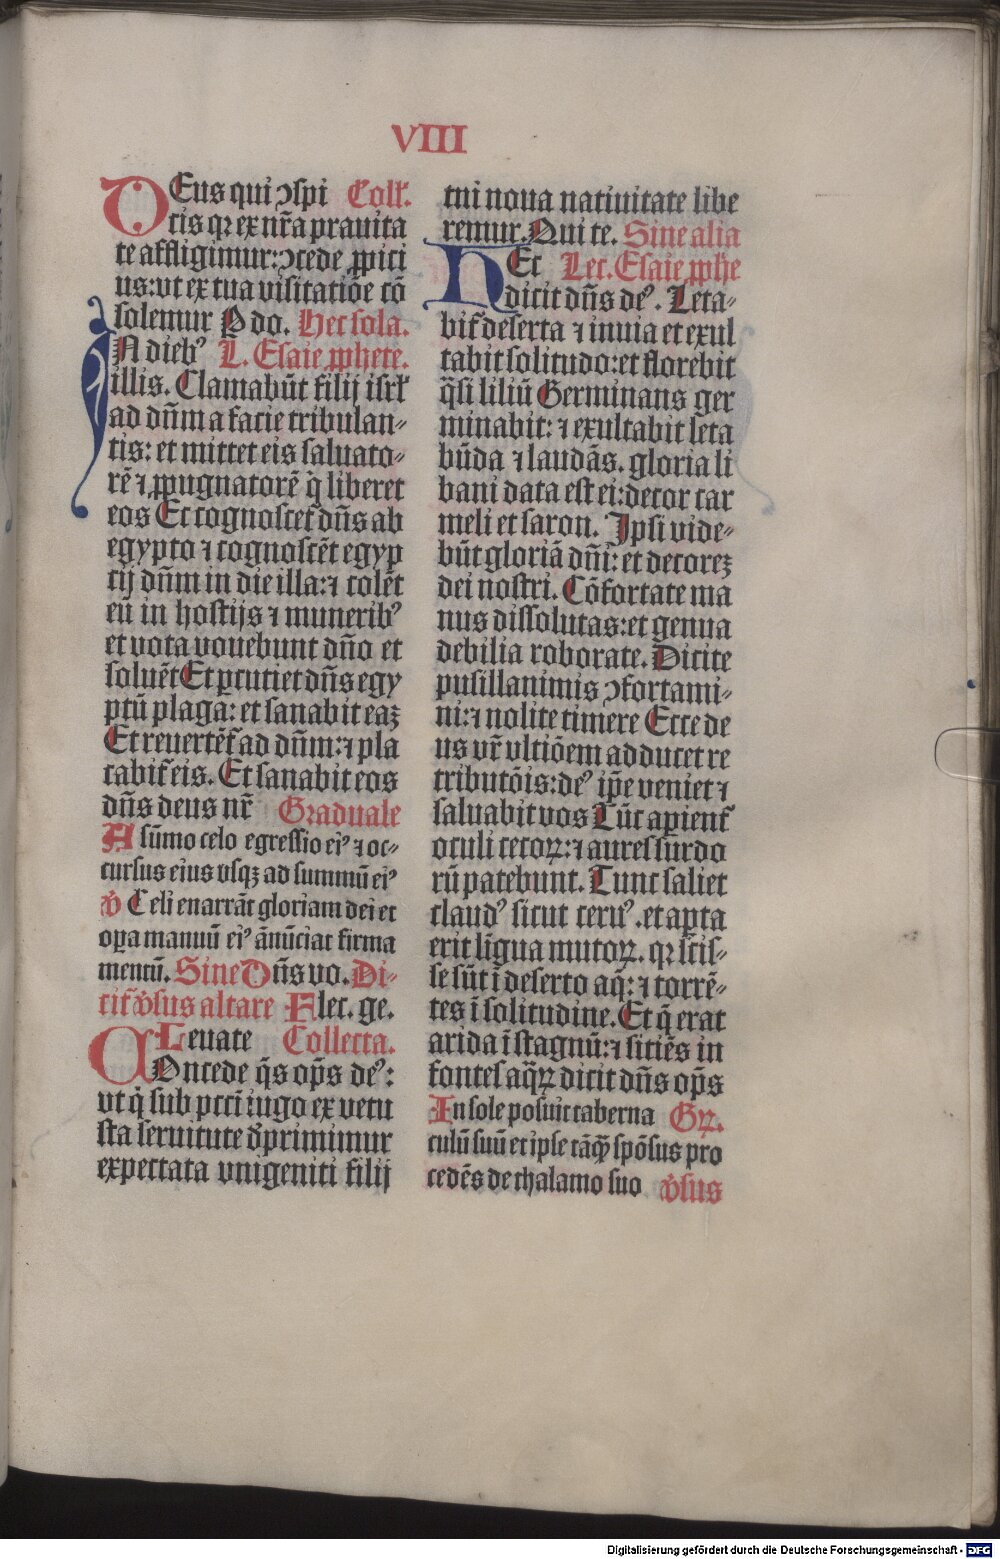 VIII
DEus qui ↄspi Coll'.
cis qꝛ ex nr̄a prauita
te affligimur: ↄcede ꝓpici
us: vt ex tua visitatiōe cō
solemur P do. Hec sola.
IN dieb⁹ L. Esaie ꝓphete.
illis. Clamabūt filij isrl'
ad dn̄m a facie tribulan⸗
tis: et mittet eis saluato⸗
rē ⁊ ꝓpugnatorē q̇ liberet
eos Et cognoscet᷑ dn̄s ab
egypto ⁊ cognoscēt egyp
tij dn̄m in die illa: ⁊ colēt
eū in hostijs ⁊ munerib⁹
et vota vouebunt dn̄o et
soluēt Et ꝑcutiet dn̄s egy
ptū plaga: et sanabit eaꝫ
Et reuertēt᷑ ad dn̄m: ⁊ pla
cabit᷑ eis. Et sanabit eos
dn̄s deus nr̄ Graduale
A sūmo celo egressio ei⁹ ⁊ oc⸗
cursus eius vsqꝫ ad summū ei⁹
v̊ Celi enarrāt gloriam dei et
oꝑa manuū ei⁹ ānūciat firma
mentū. Sine Dn̄s vo. Di⸗
cit᷑ v̊sus altare Flec. ge.
Leuate Collecta.
COncede q̄s op̄s de⁹:
vt q̄ sub pcc̄i iugo ex vetu
sta seruitute dep̄rimimur
expectata vnigeniti filij
tui noua natiuitate libe
remur. Qui te. Sine alia
HEc Lec. Esaie ꝓphe
dicit dn̄s de⁹. Leta⸗
bit᷑ deserta ⁊ inuia et exul
tabit solitudo: et florebit
q̄si liliū Germinans ger
minabit: ⁊ exultabit leta
būda ⁊ laudās. gloria li
bani data est ei: decor car
meli et saron. Ipsi vide⸗
būt gloriā dn̄i: et decoreꝫ
dei nostri. Cōfortate ma
nus dissolutas: et genua
debilia roborate. Dicite
pusillanimis ↄfortami⸗
ni: ⁊ nolite timere Ecce de
us vr̄ vltiōem adducet re
tributōis: de⁹ ip̄e veniet ⁊
saluabit vos Tūc apient᷑
oculi cecoꝝ: ⁊ aures surdo
rū patebunt. Tunc saliet
claud⁹ sicut ceru⁹. et aꝑta
erit līgua mutoꝝ. qꝛ scis⸗
se sūt ī deserto aq̄: ⁊ torrē⸗
tes ī solitudine. Et q̄ erat
arida ī stagnū: ⁊ sitiēs in
fontes aq̄ꝝ dicit dn̄s op̄s
In sole posuit taberna Gꝝ.
culū suū et ipse tāq̄ꝫ spōsus pro
cedēs de thalamo suo v̊sus
Digitalisierung gefördert durch die Deutsche Forschungsgemeinschaft - DFG